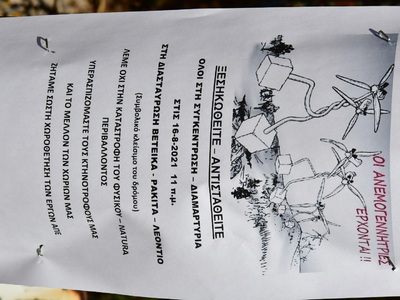 ΟΙ ΑΝΕΜΟΓΕΝΝΗΤΡΙΕΣ
ΕΡΧΟΝΤΑΙ !!!
ΞΕΣΗΚΩΘΕΙΤΕ - ΑΝΤΙΣΤΑΘΕΙΤΕ
ΟΛΟΙ ΣΤΗ ΣΥΓΚΕΝΤΡΩΣΗ - ΔΙΑΜΑΡΤΥΡΙΑ
ΣΤΙΣ 16-8-2021 11 π.μ.
ΣΤΗ ΔΙΑΣΤΑΥΡΩΣΗ ΒΕΤΕΙΚΑ - ΡΑΚΙΤΑ - ΛΕΟΝΤΙΟ
(Συμβολικό κλείσιμο του δρόμου)
ΛΕΜΕ ΟΧΙ ΣΤΗΝ ΚΑΤΑΣΤΡΟΦΗ ΤΟΥ ΦΥΣΙΚΟΥ – NATURA
ΠΕΡΙΒΑΛΛΟΝΤΟΣ
ΥΠΕΡΑΣΠΙΖΟΜΑΣΤΕ ΤΟΥΣ ΚΤΗΝΟΤΡΟΦΟΥΣ ΜΑΣ
ΚΑΙ ΤΟ ΜΕΛΛΟΝ ΤΩΝ ΧΩΡΙΩΝ ΜΑΣ
ΖΗΤΑΜΕ ΣΩΣΤΗ ΧΩΡΟΘΕΤΗΣΗ ΤΩΝ ΕΡΓΩΝ ΑΠΕ